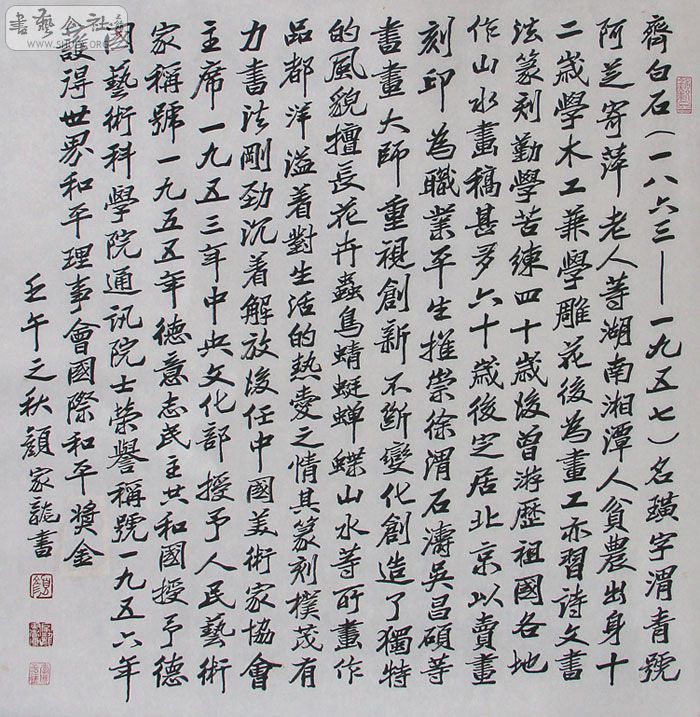 齊白石（一八六三——一九五七）名璜字渭青號
阿芝寄萍老人等湖南湘潭人貧農出身十
二歲學木工兼學雕花後為畫工亦習詩文書
法篆刻勤學苦練四十歲後曾游歷祖國各地
作山水畫稿甚多六十歲後定居北京以賣畫
刻印為職業平生推崇徐渭石濤吳昌碩等
書畫大師重視創新不斷變化創造了獨特
的風貌擅長花卉蟲鳥蜻蜓蟬蝶山水等所畫作
品都洋溢着對生活的熱愛之情其篆刻樸茂有
力書法剛勁沉着解放後任中國美術家協會
主席一九五三年中央文化部授予人民藝術
家稱號一九五五年德意志民主共和國授予德
國藝術科學院通訊院士榮譽稱號一九五六年
獲得世界和平理事會國際和平獎金
壬午之秋顏家龍書
書藝公社